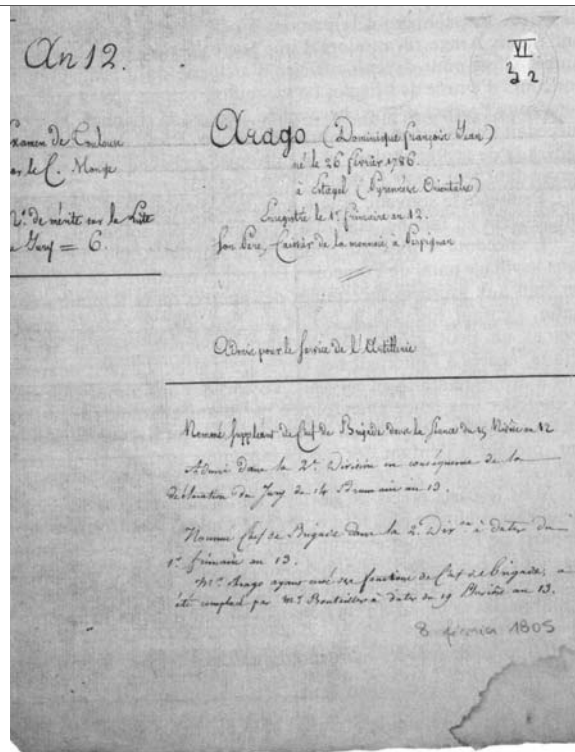 An 12.
VI
3 2
xamen de Toulouse
ar le C. Monge
de mérite sur la liste
Jury = 6.
Arago (Dominique françois Jean)
né le 26 février 1786.
à Estagel (Pyrennées Orientales)
Enregistré le 1er frimaire an 12.
Son Père, Caissier de la monnaie, à Perpignan
Admis pour le Service de l'Artillerie
Nommé Suppléant de Chef de Brigade dans la Séance du 15 Nivôse an 12
Admis dans la 2e Division en conséquence de la
déclaration du Jury du 14 Brumaire an 13.
Nommé Chef de Brigade dans la 2e Divon à dater du
1er frimaire an 13.
Mr Arago ayant cessé ses fonctions de Chef de brigade, a
été remplacé par Mr à dater du 19 an 13.
8 février 1805